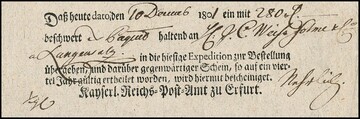 Daß heute dato, den 10 180 ein mit 280
beschwert haltend an H. J. C. Weiß
Langensalz
in die hiesige Expedition zur Bestellung
übergeben, und darüber gegenwärtiger Schein, so auf ein vier-
tel Jahr gültig ertheilet worden, wird hiermit bescheiniget.
Kayserl. Reichs-Post-Amt zu Erfurt.